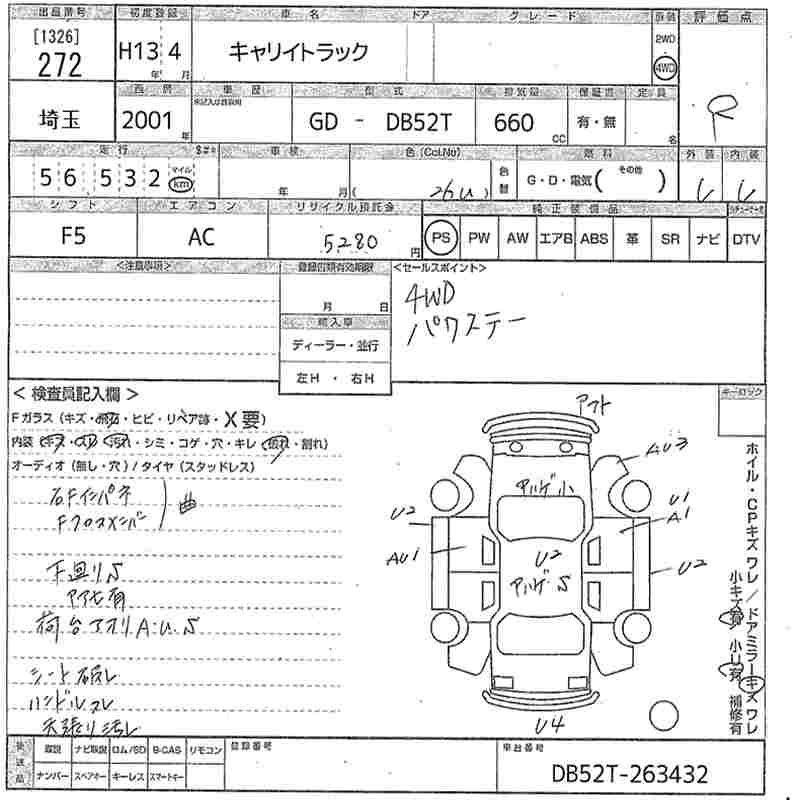 出品番号 初度登録 車名 ドア グレード 駆動 評価点
[1326]
272
H13 4
年 月
キャリイトラック
2WD
4WD
R
西暦 車歴 型式 排気量 保証書 定員
埼玉
2001 年
GD - DB52T
660 CC
有・無
名
走行 車検 色(Col.No) 燃料 外装 内装
56,532
マイル
km
年 月
( 26U )
色替
G・D・電気( その他 )
シフト エアコン リサイクル預託金 純正装備品
F5
AC
5280 円
PS PW AW エアB ABS 革 SR ナビ DTV
<注意事項>
登録書類有効期限
<セールスポイント>
月 日
4WD
パワステー
輸入車
ディーラー・並行
左H ・ 右H
<検査員記入欄>
キーロック
Fガラス(キズ・飛石・ヒビ・リペア跡・X要)
内装(キズ・スレ・汚れ・シミ・コゲ・穴・キレ・破れ・割れ)
オーディオ(無し・穴)/タイヤ(スタッドレス)
右Fインパネ
Fクロスメンバー
曲
下廻りS
アアヒ有
荷台アオリA.U.S
シート破レ
ハンドルスレ
天張り汚レ
アト
AU3
アハゲ小
U1
A1
U2
AU1
U2
アハゲS
U2
U4
ホイル・CPキズ ワレ/ドアミラーキズ ワレ
小キズ有 小U有 補修有
後送品
取説 ナビ取説 ロム/SD B-CAS リモコン
ナンバー スペアキー キーレス スマートキー
登録番号
車台番号
DB52T-263432